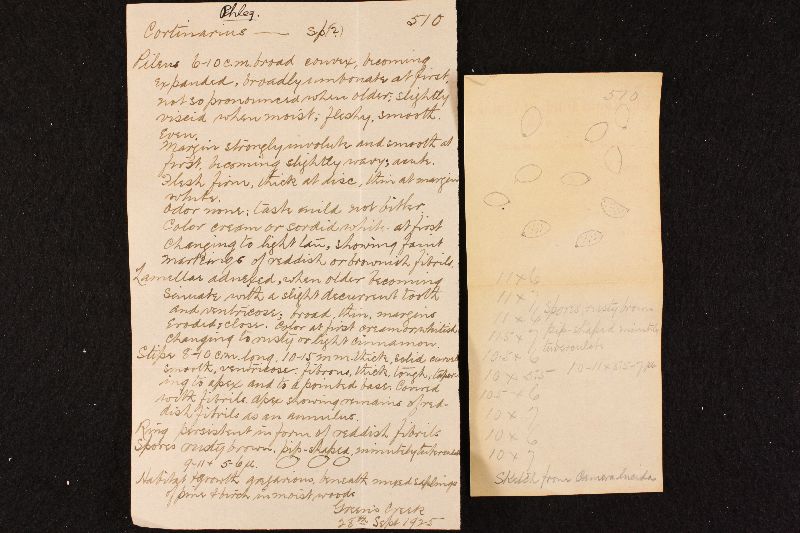 Phleg.
Cortinarius — sp(2) 510
Pileus 6-10 c.m. broad convex, becoming
expanded, broadly umbonate at first,
not so pronounced when older; slightly
viscid when moist; fleshy, smooth.
Even.
Margin strongly involute and smooth at
first, becoming slightly wavy; acute.
Flesh firm, thick at disc, thin at margin
white.
Odor none; taste mild not bitter.
Color cream or sordid white at first
changing to light tan, showing faint
markings of reddish or brownish fibrils.
Lamellae adnexed, when older becoming
Sinuate with a slight decurrent tooth
and ventricose; broad, thin, margins
Eroded; close. Color at first cream or whitish
Changing to rusty or light cinnamon.
Stipe 8-10 cm. long. 10-15 mm. thick, solid curved
smooth, ventricose. fibrous, thick, tough, taper-
ing to apex and to a pointed base. Covered
with fibrils. apex showing remains of red-
dish fibrils as an annulus.
Ring persistent in form of reddish fibrils
Spores rusty brown. pip-shaped, minutely tuberculate
9-11 x 5-6 µ.
Habitat & growth gregarious, beneath mixed saplings
of pine & birch in moist woods
Green's Creek
28th Sept 1925
510
11 x 6
11 x 7
11 x 6 Spores rusty brown
11.5 x 7 pip-shaped minutely
10.5 x 6 tuberculate
10 x 5.5 10-11 x 5.5-7 µ
10.5 x 6
10 x 7
10 x 6
10 x 7
Sketch from Camera lucida